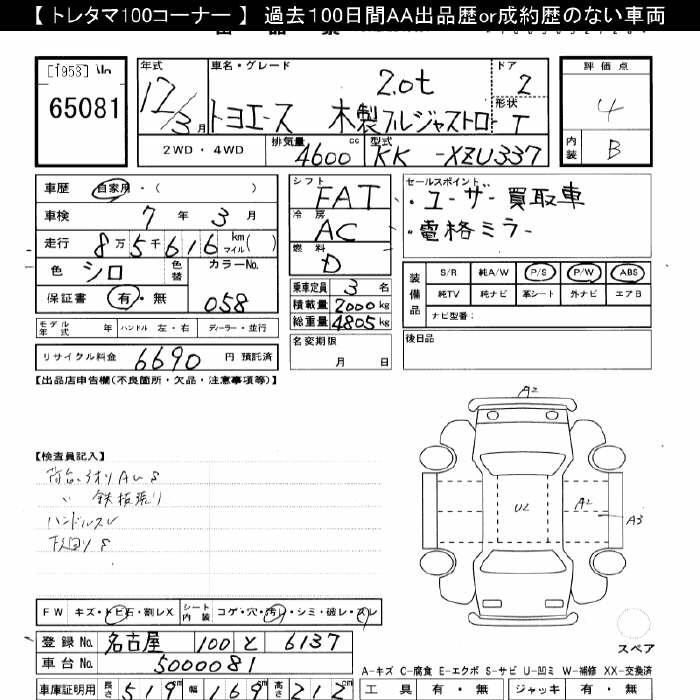 【 トレタマ100コーナー 】 過去100日間AA出品歴or成約歴のない車両
[1953] No
65081
年式
12/3月
車名・グレード
2.0t
トヨエース 木製フルジャストロー
ドア
2
形状
T
評価点
4
内装
B
2WD・4WD
排気量
4600cc
型式
KK-XZU337
車歴 自家用・( )
車検 7年 3月
走行 8万5千616 km マイル( )
色 シロ
色替
カラーNo.
058
保証書 有・無
モデル年式 年 ハンドル 左・右 ディーラー・並行
リサイクル料金 6690 円 預託済
シフト
FAT
冷房
AC
燃料
D
乗車定員 3名
積載量 2000kg
総重量 4805kg
名変期限
月 日
セールスポイント
・ユーザー買取車
・電格ミラー
装備品
S/R 純A/W P/S P/W ABS
純TV 純ナビ 革シート 外ナビ エアB
ナビ型番:
後日品
【出品店申告欄(不良箇所・欠品・注意事項等)】
【検査員記入】
鉄板張り
ハンドルスレ
下回りS
A2
U2
A2
A3
スペア
FW キズ・トビ石・割レX
シート内装 コゲ・穴・汚レ・シミ・破レ・スレ
登録No. 名古屋 100 と 6137
車台No. 5000081
A-キズ C-腐食 E-エクボ S-サビ U-凹ミ W-補修 XX-交換済
車庫証明用 長さ 519cm 幅 169cm 高さ 212cm
工具 有・無 ジャッキ 有・無